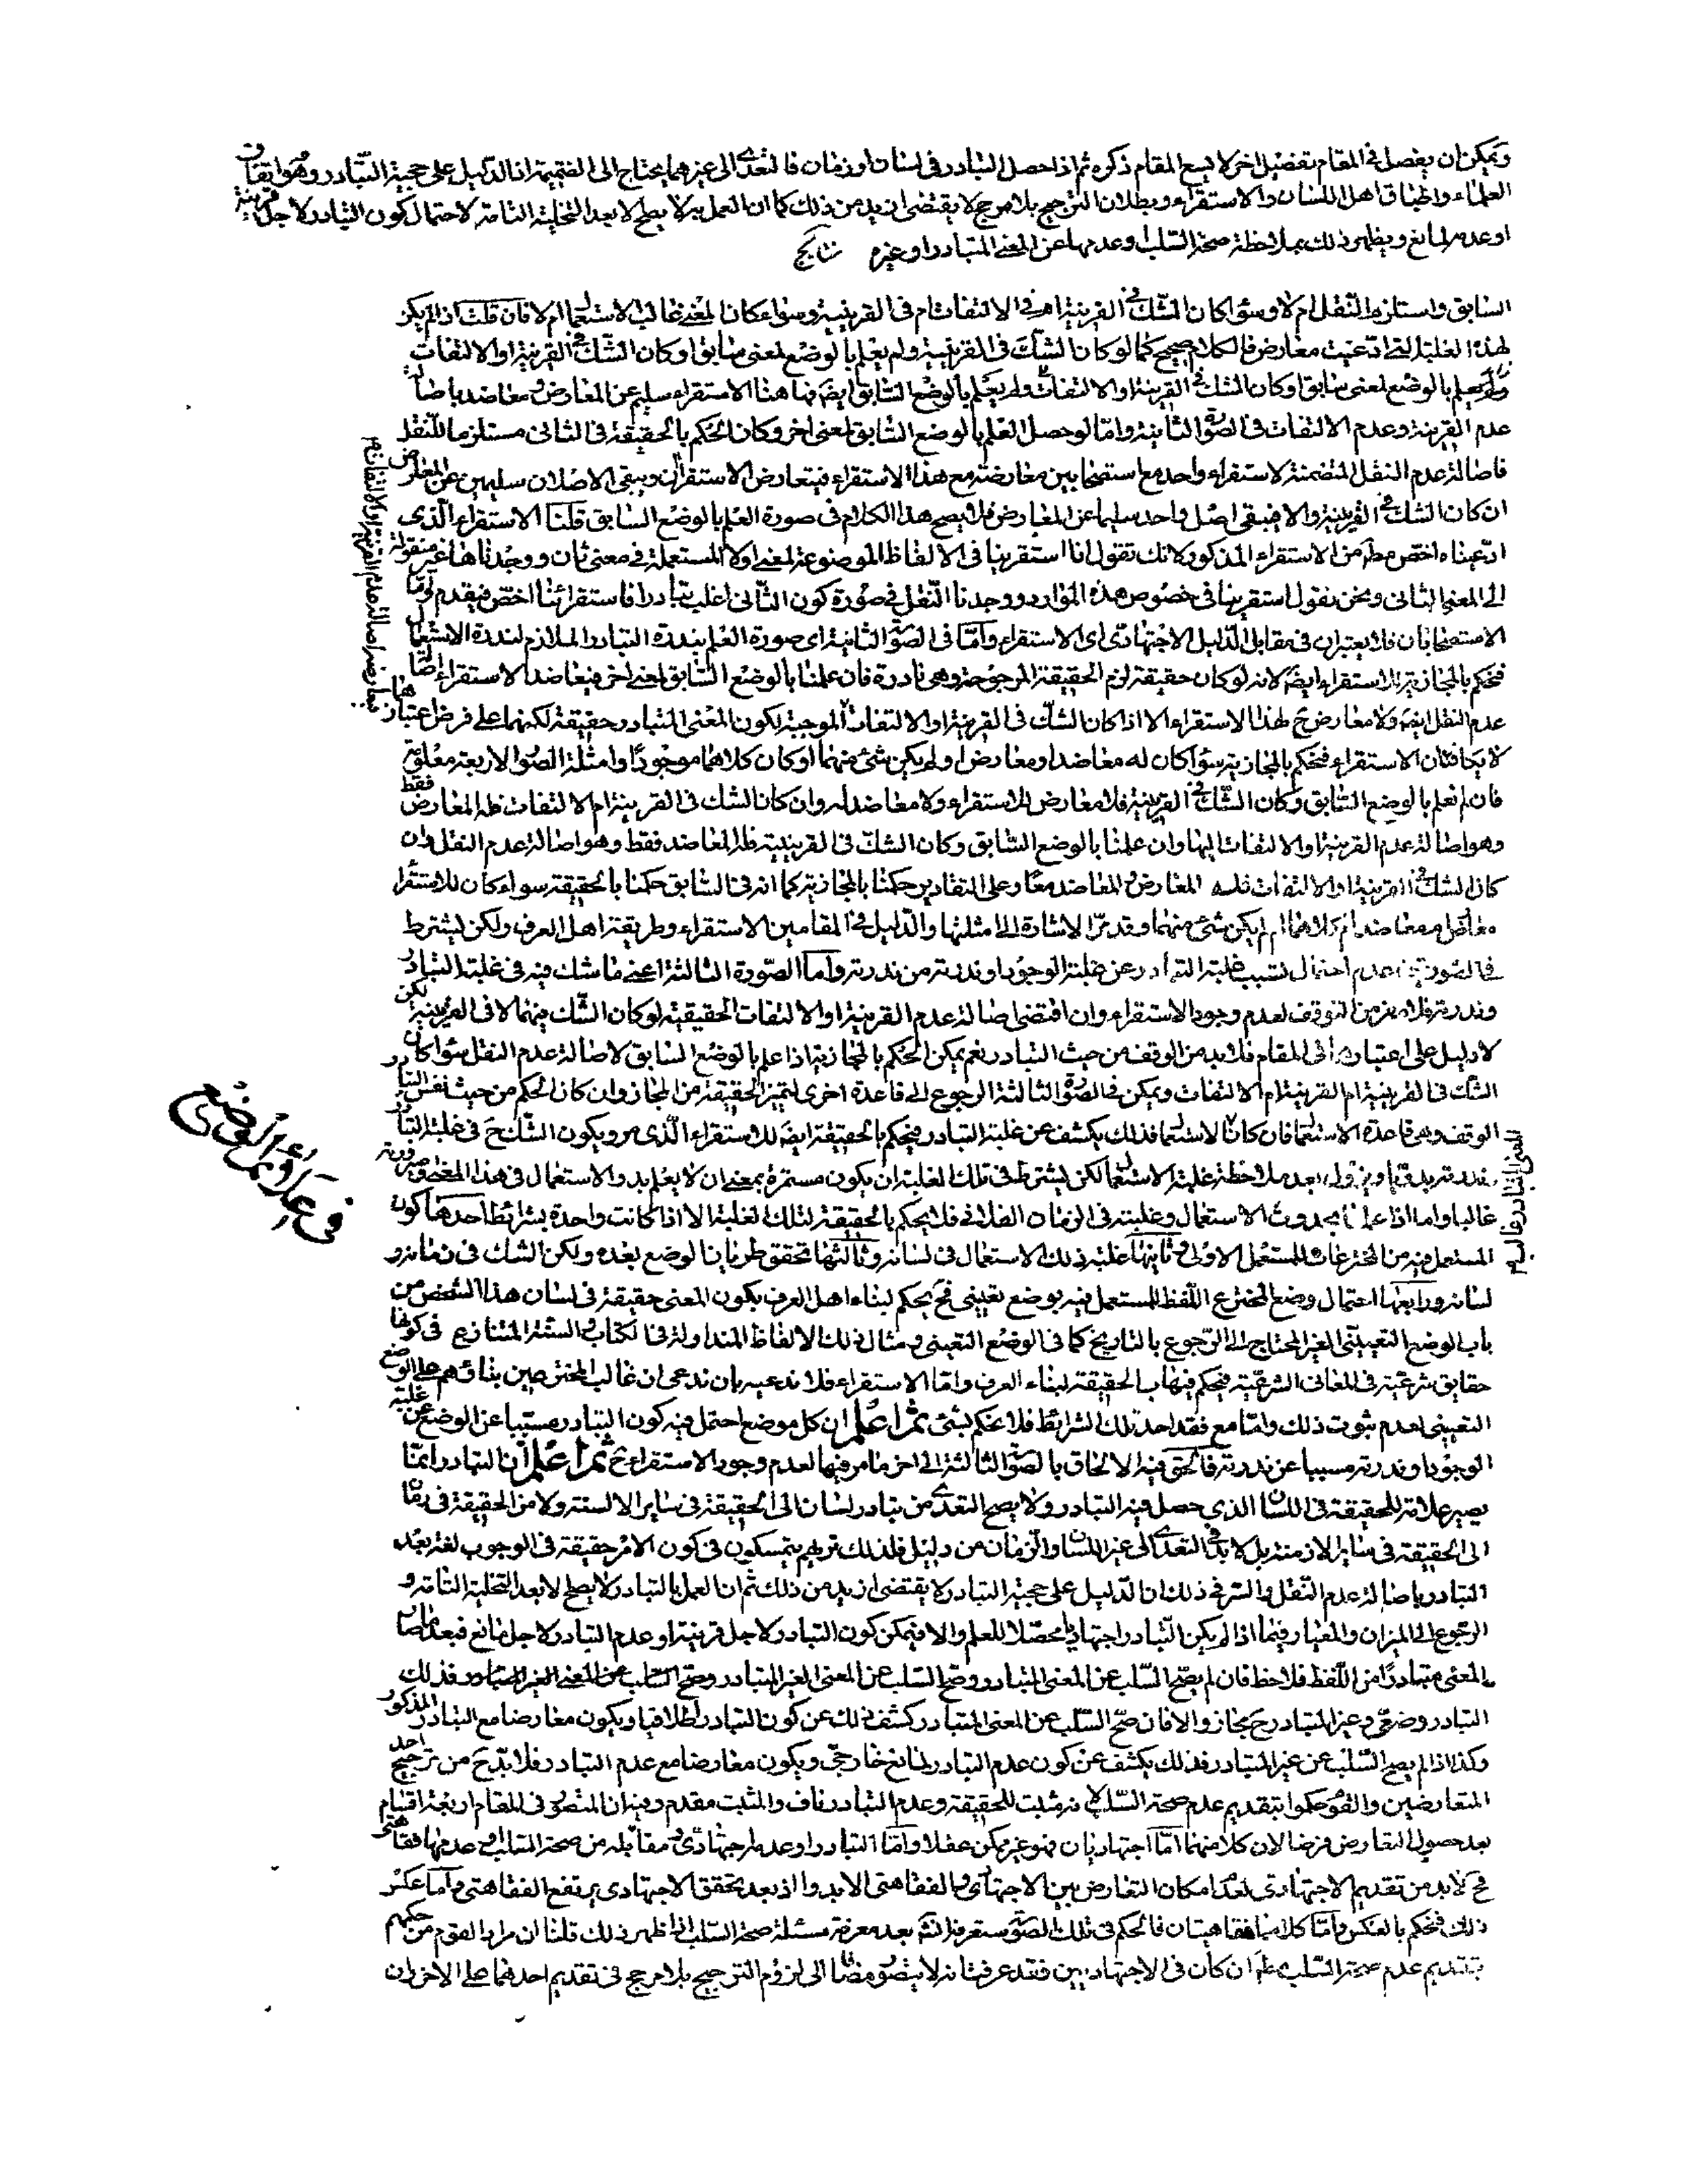 ويمكن ان يفصل فى المقام تفصيل اخر لا يسع المقام ذكره ثم اذا حصل التبادر فى لسان او زمان فالتعدى الى غيرهما يحتاج الى الضميمة اذ الدليل على حجية التبادر وهو اتفاق
العلماء واطباق اهل اللسان والاستقراء وبطلان الترجيح بلا مرجح لا يقتضى ازيد من ذلك كما ان العمل به لا يصح الا بعد التخلية التامة لاحتمال كون التبادر لاجل قرينة
او عدمه لمانع ويظهر ذلك بملاحظة صحة السلب وعدمها عن المعنى المتبادر او غيره نتايج
السابق واستلزم النقل ام لا وسواء كان الشك فى القرينة ام فى الالتفات ام فى القرينية وسواء كان المعنى غالب الاستعمال ام لا فان قلت اذا لم يكن
لهذه الغلبة التى ادعيت معارض فالكلام صحيح كما لو كان الشك فى القرينية ولم يعلم بالوضع لمعنى سابق او كان الشك فى القرينة او الالتفات
ولم يعلم بالوضع لمعنى سابق او كان الشك فى القرينة او الالتفات ولم يعلم بالوضع السابق ايضا فها هنا الاستقراء سليم عن المعارض معاضد باصالة
عدم القرينة وعدم الالتفات فى الصورة الثانية واما لو حصل العلم بالوضع السابق لمعنى اخر وكان الحكم بالحقيقة فى الثانى مستلزما للنقل
فاصالة عدم النقل المتضمنة لاستقراء واحد مع استصحابين معارضة مع هذا الاستقراء فيتعارض الاستقراءان ويبقى الاصلان سليمين عن المعارض
ان كان الشك فى القرينة والا فيبقى اصل واحد سليما عن المعارض فلا يصح هذا الكلام فى صورة العلم بالوضع السابق قلنا الاستقراء الذى
ادعيناه اخص مط من الاستقراء المذكور لانك تقول انا استقرينا فى الالفاظ الموضوعة لمعنى اولا المستعملة فى معنى ثان ووجدناها غير منقولة
الى المعنى الثانى ونحن نقول استقرينا فى خصوص هذه الموارد ووجدنا النقل فى صورة كون الثانى اغلب تبادرا فاستقرائنا اخص فيقدم واما
الاستصحابان فلا يعتبران فى مقابل الدليل الاجتهادى اى الاستقراء واما فى الصورة الثانية اى صورة العلم بندرة التبادر الملازم لندرة الاستعمال
فنحكم بالمجازية للاستقراء ايضا لانه لو كان حقيقة لزم الحقيقة المرجوحة وهى نادرة فان علمنا بالوضع السابق لمعنى اخر فيعاضد الاستقراء اصالة
عدم النقل ايضا ولا معارض ح لهذا الاستقراء الا اذا كان الشك فى القرينة او الالتفات الموجبة لكون المعنى المتبادر حقيقة لكنهما على فرض اعتبارهما
لا يكافئان الاستقراء فنحكم بالمجازية سواء كان له معاضد او معارض او لم يكن شئ منهما او كان كلاهما موجودا وامثلة الصور الاربعة معلومة
فان لم نعلم بالوضع السابق وكان الشك فى القرينية فلا معارض للاستقراء ولا معاضد له وان كان الشك فى القرينة ام الالتفات فله المعارض فقط
وهو اصالة عدم القرينة او الالتفات اليها وان علمنا بالوضع السابق وكان الشك فى القرينية فله المعاضد فقط وهو اصالة عدم النقل وان
كان الشك فى القرينة او الالتفات فله المعارض والمعاضد معا وعلى التقادير حكمنا بالمجازية كما انه فى السابق حكمنا بالحقيقة سواء كان للاستقراء
معارض ام معاضد ام كلاهما ام لم يكن شئ منهما وقد مر الاشارة الى امثلتها والدليل فى المقامين الاستقراء وطريقة اهل العرف ولكن يشترط
فى الصورتين عدم احتمال تسبب غلبة التبادر عن غلبة الوجود او ندرته من ندرته واما الصورة الثالثة اعنى ما شك فيه فى غلبة التبادر
وندرته فلا مفر من التوقف لعدم وجود الاستقراء وان اقتضى اصالة عدم القرينة او الالتفات الحقيقية لو كان الشك فيهما لا فى القرينية لكن
لا دليل على اعتبارهما فى المقام فلا بد من الوقف من حيث التبادر نعم يمكن الحكم بالمجازية اذا علم بالوضع السابق لاصالة عدم النقل سواء كان
الشك فى القرينية ام القرينة ام الالتفات ويمكن فى الصورة الثالثة الرجوع الى قاعدة اخرى لتميز الحقيقة من المجاز وان كان الحكم من حيث نفس التبادر
الوقف وهى قاعدة الاستعمال فان كان الاستعمال فذلك يكشف عن غلبة التبادر فيحكم بالحقيقة ايضا للاستقراء الذى مر ويكون الشك ح فى غلبة التبادر
وندرته بدويا ويزول بعد ملاحظة غلبة الاستعمال لكن يشترط فى تلك الغلبة ان يكون مستمرة بمعنى ان لا يعلم بدو الاستعمال فى هذا المعنى وصيرورته
غالبا واما اذا علمنا بحدوث الاستعمال وغلبته فى الزمان الفلانى فلا يحكم بالحقيقة لتلك الغلبة الا اذا كانت واحدة بشرائط احدها كون
المستعمل فيه من المخترعات للمستعمل الاولى وثانيها غلبة ذلك الاستعمال فى لسانه وثالثها تحقق طريان الوضع بعده ولكن الشك فى زمانه و
لسانه ورابعها احتمال وضع المخترع اللفظ للمستعمل فيه بوضع تعيينى فح يحكم لبناء اهل العرف بكون المعنى حقيقة فى لسان هذا الشخص من
باب الوضع التعيينى الغير المحتاج الى الرجوع بالتاريخ كما فى الوضع التعينى ومثال ذلك الالفاظ المتداولة فى الكتاب والسنة المتنازع فى كونها
حقايق شرعية فى المعانى الشرعية فيحكم فيها بالحقيقة لبناء العرف واما الاستقراء فلا ندعيه بان ندعى ان غالب المخترعين بناؤهم على الوضع
التعيينى لعدم ثبوت ذلك واما مع فقد احد تلك الشرائط فلا نحكم بشئ ثم اعلم ان كل موضع احتمل فيه كون التبادر مسببا عن الوضع عن غلبة
الوجود او ندرته مسببا عن ندرته فالحق فيه الالحاق بالصورة الثالثة الى اخر ما مر فيها لعدم وجود الاستقراء ح ثم اعلم ان التبادر انما
يصير علامة للحقيقة فى اللسان الذى حصل فيه التبادر ولا يصح التعدى من تبادر لسان الى الحقيقة فى ساير الالسنة ولا من الحقيقة فى زمان
الى الحقيقة فى ساير الازمنة بل لا بد فى التعدى الى غير اللسان والزمان من دليل فلذلك تريهم يتمسكون فى كون الامر حقيقة فى الوجوب لغة بعد
التبادر باصالة عدم النقل والسر فى ذلك ان الدليل على حجية التبادر لا يقتضى ازيد من ذلك ثم ان العمل بالتبادر لا يصح الا بعد التخلية التامة و
الرجوع الى الميزان والمعيار فيما اذا لم يكن التبادر اجتهاديا محصلا للعلم والا فيمكن كون التبادر لاجل قرينة او عدم التبادر لاجل مانع فبعد ما صار
المعنى متبادرا من اللفظ فلاحظ فان لم يصح السلب عن المعنى المتبادر وصح السلب عن المعنى الغير المتبادر فذلك
التبادر وضعى وغير المتبادر ح مجاز والا فان صح السلب عن المعنى المتبادر كشف ذلك عن كون التبادر اطلاقيا ويكون معارضا مع التبادر المذكور
وكذا اذا لم يصح السلب عن غير المتبادر فذلك يكشف عن كون عدم التبادر لمانع خارجى ويكون معارضا مع عدم التبادر فلا بد ح من ترجيح احد
المتعارضين والقوم حكموا بتقديم عدم صحة السلب لانه مثبت للحقيقة وعدم التبادر ناف والمثبت مقدم وفيه ان المتصور فى المقام اربعة اقسام
بعد حصول التعارض فرضا لان كلا منهما اما اجتهاديان فهو غير ممكن عقلا واما التبادر او عدمه اجتهادى ومقابله من صحة السلب او عدمها فقاهتى
فح لا بد من تقديم الاجتهادى لعدم امكان التعارض بين الاجتهادى والفقاهتى الا بدوا اذ بعد تحقق الاجتهادى يرتفع الفقاهتى واما عكس
ذلك فنحكم بالعكس واما كلاهما فقاهتيان فالحكم فى تلك الصورة ستعرفه انشاء بعد معرفة مسئلة صحة السلب اذا ظهر ذلك قلنا ان مراد القوم من حكمهم
بتقديم عدم صحة السلب ان كان فى الاجتهاديين فقد عرفت انه لا يتصور مضافا الى لزوم الترجيح بلا مرجح فى تقديم احدهما على الاخر وان
فى علائم الوضع